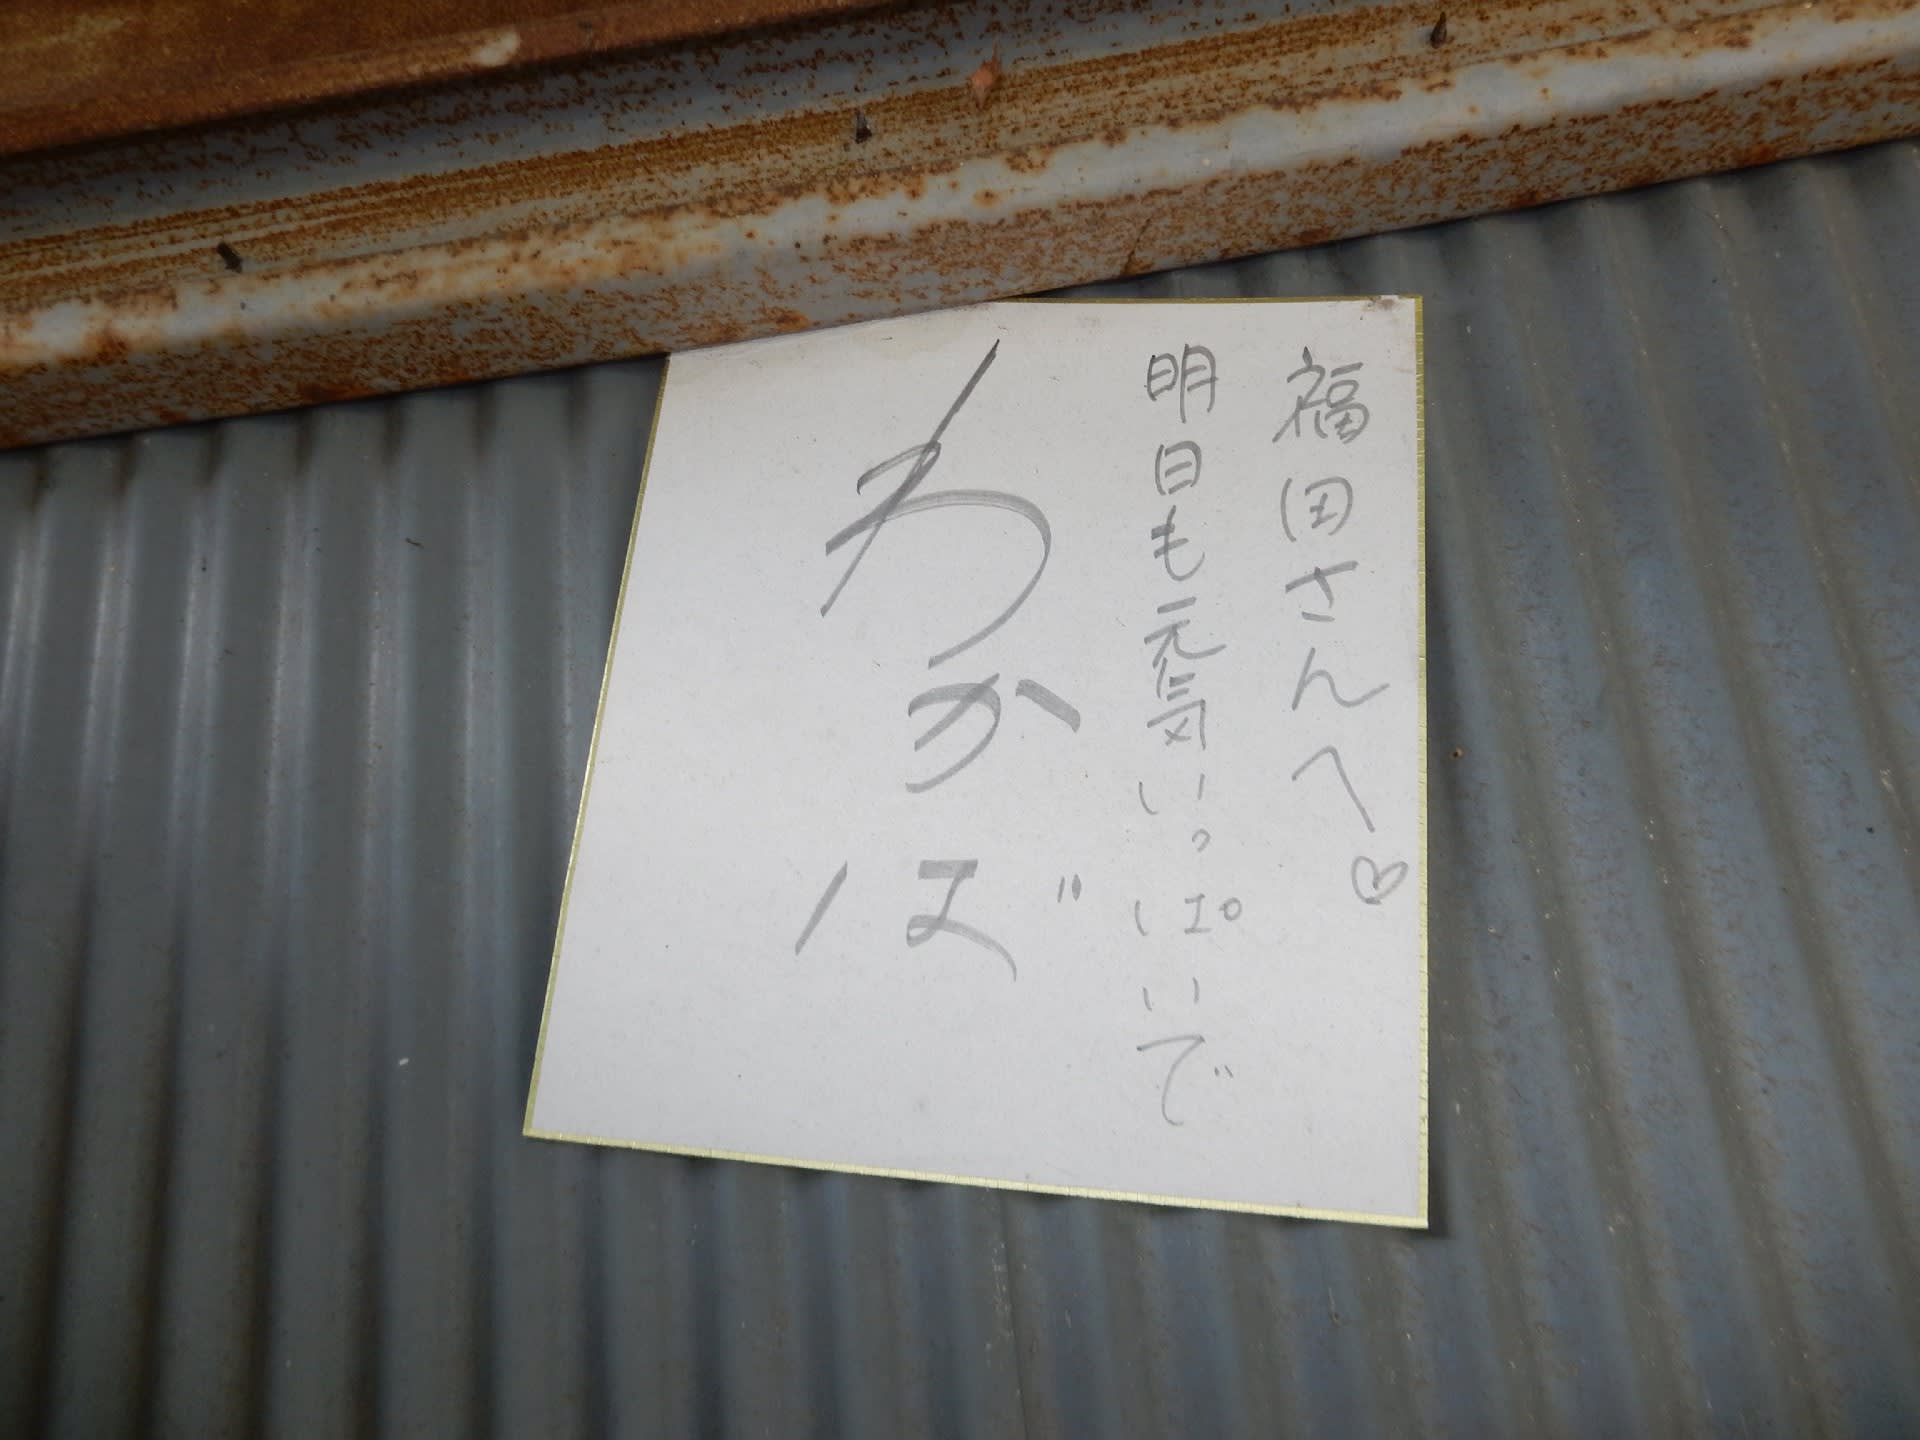 福田さんへ♡
明日も元気いっぱいいで
わかば